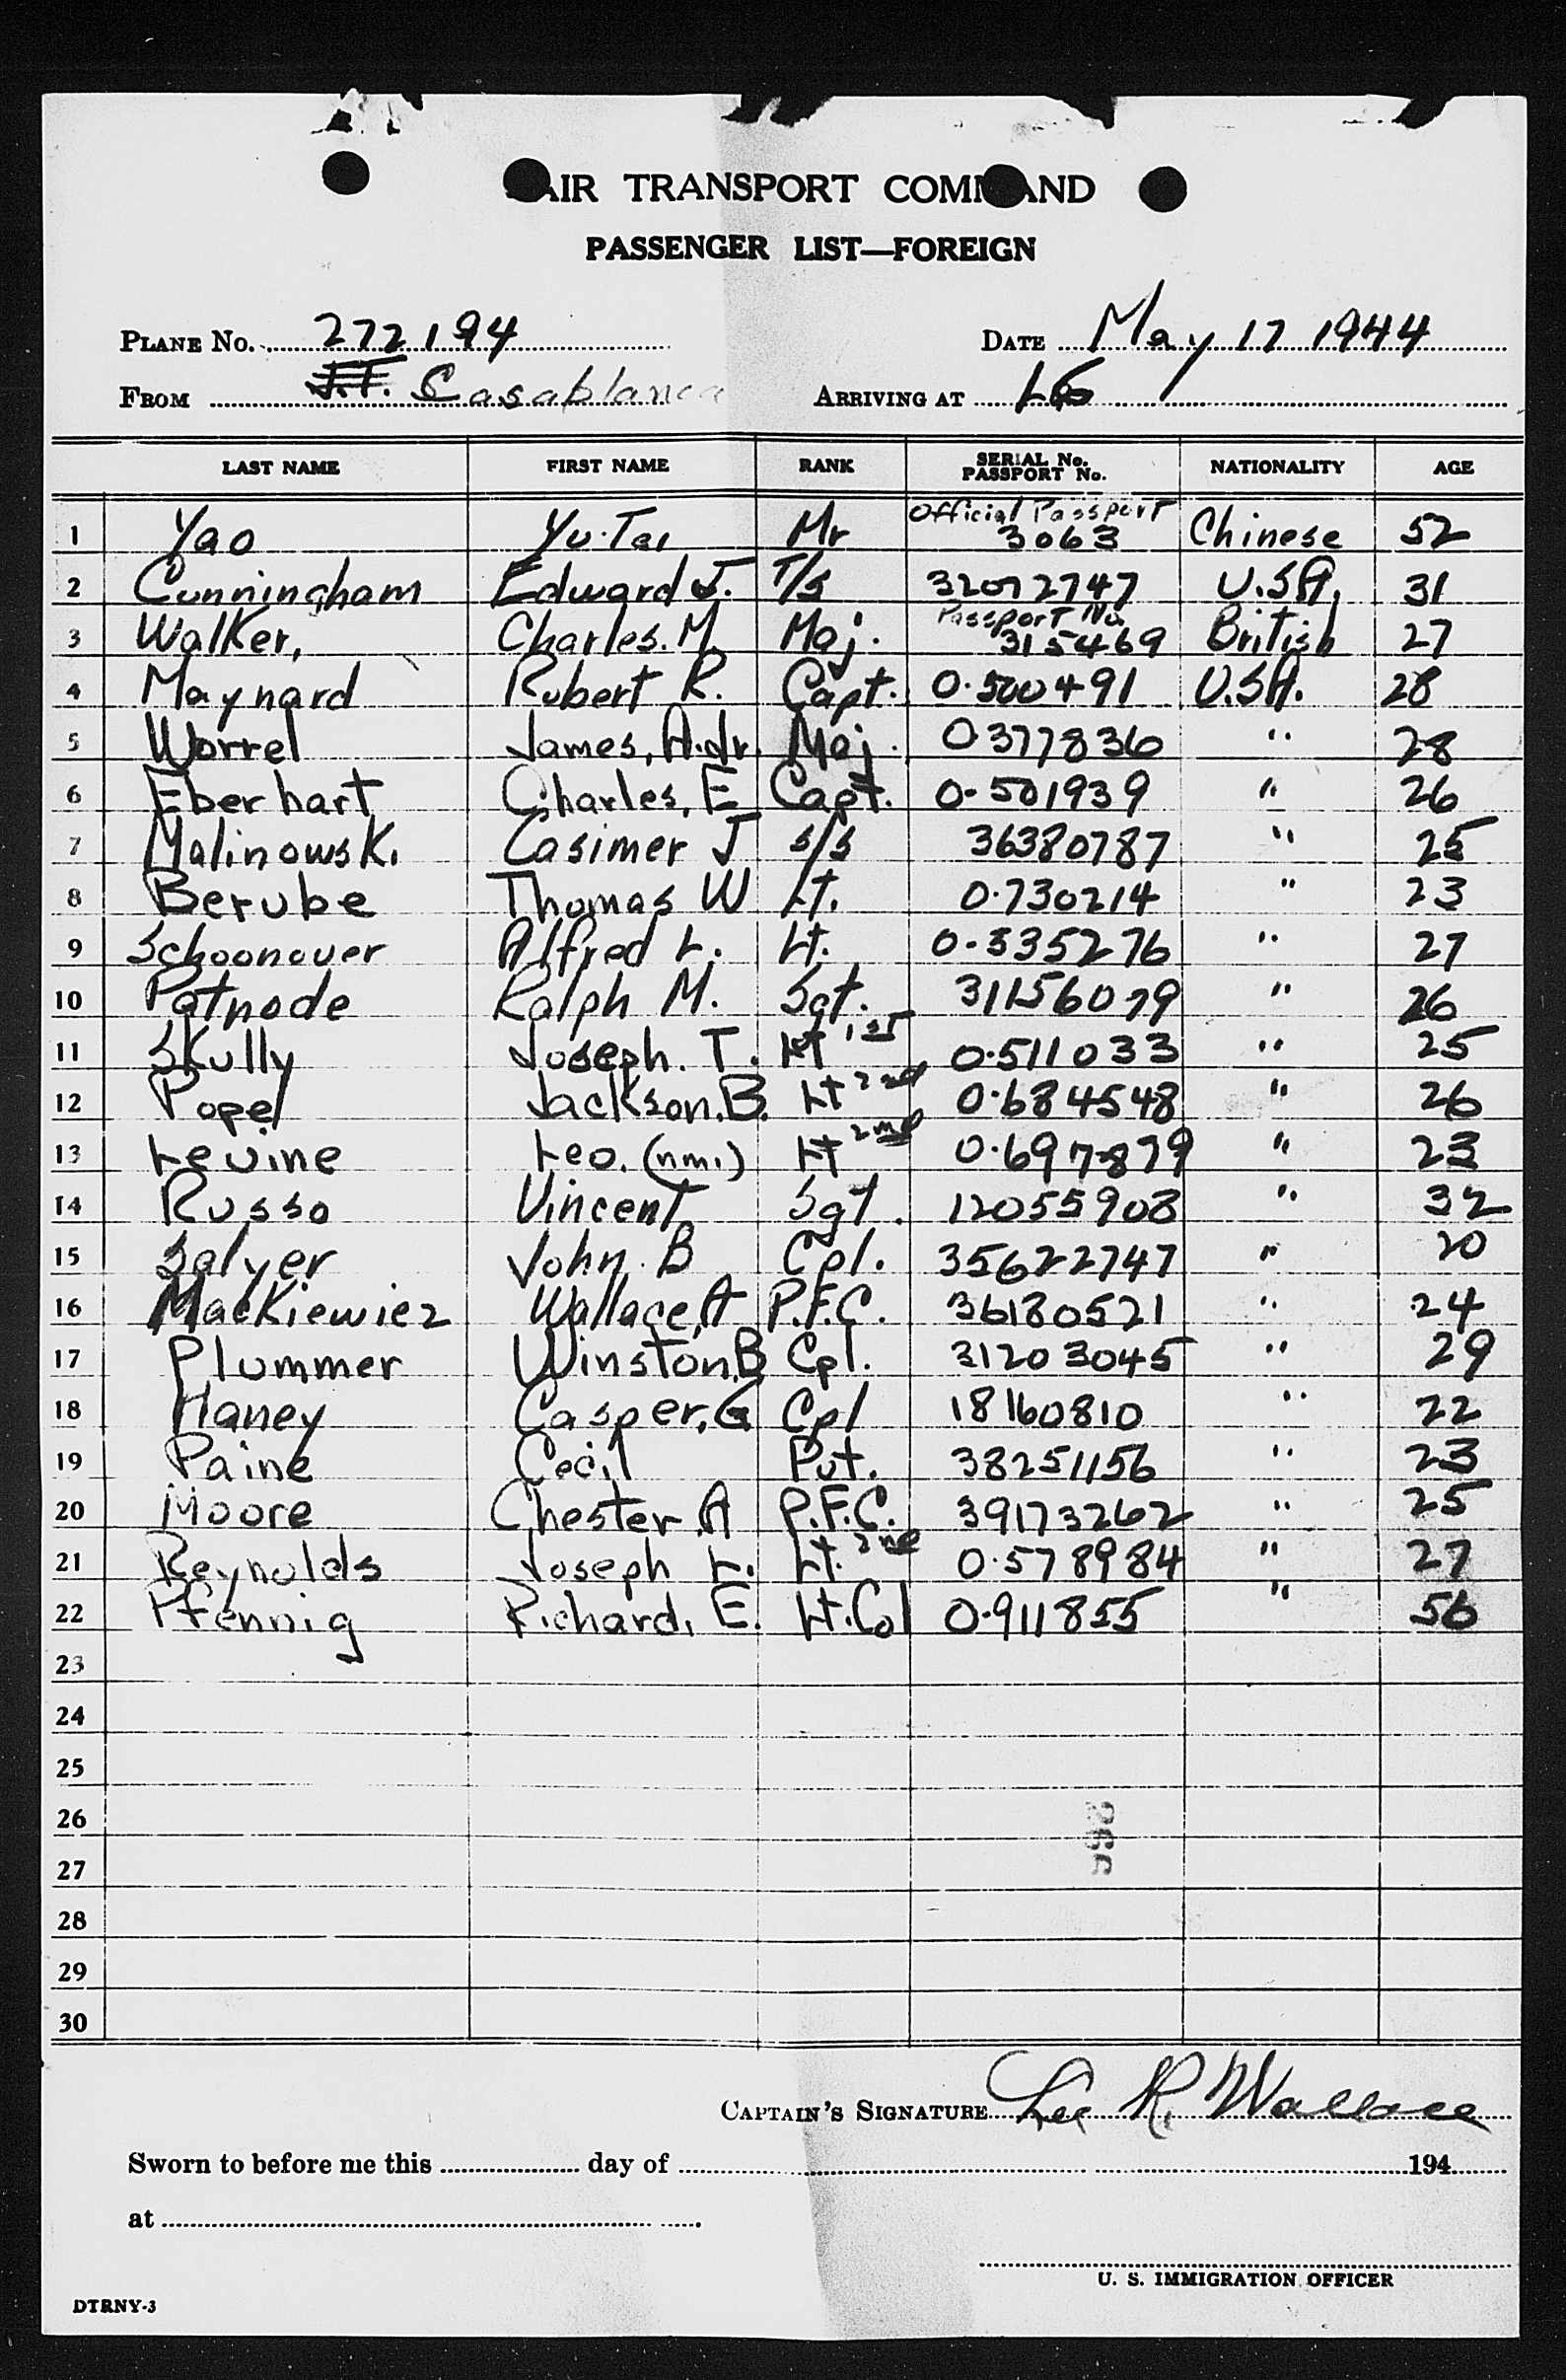 AIR TRANSPORT COMMAND
PASSENGER LIST—FOREIGN
PLANE No. 272194 DATE May 17 1944
FROM Casablanca ARRIVING AT LG
LAST NAME FIRST NAME RANK SERIAL No. PASSPORT No. NATIONALITY AGE
1 Yao Yu-Tai Mr Official Passport 3063 Chinese 52
2 Cunningham Edward J. T/S 32072747 U.S.A. 31
3 Walker, Charles. M. Maj. Passport No. 315469 British 27
4 Maynard Robert R. Capt. 0.500491 U.S.A. 28
5 Worrel James, A. Jr. Maj. 0377836 " 28
6 Eberhart Charles, E Capt. 0-501939 " 26
7 Malinowski Casimer J S/S 36380787 " 25
8 Berube Thomas W Lt. 0.730214 " 23
9 Schoonover Alfred L. Lt. 0.335276 " 27
10 Patnode Ralph M. Sgt. 31156079 " 26
11 Skully Joseph. T. Lt 1st 0.511033 " 25
12 Popel Jackson. B. Lt 2nd 0.684548 " 26
13 Levine Leo. (nmi) Lt 2nd 0.697879 " 23
14 Russo Vincent Sgt. 12055908 " 32
15 Salyer John. B Cpl. 35622747 " 20
16 Mackiewiez Wallace, A P.F.C. 36180521 " 24
17 Plummer Winston, B Cpl. 31203045 " 29
18 Haney Casper, G Cpl 18160810 " 22
19 Paine Cecil Pvt. 38251156 " 23
20 Moore Chester A P.F.C. 39173262 " 25
21 Reynolds Joseph L. Lt. 2nd 0.578984 " 27
22 Pfennig Richard, E. Lt. Col 0.911855 " 56
23
24
25
26
27
28
29
30
CAPTAIN'S SIGNATURE Lee R. Wallace
Sworn to before me this day of 194
at
U. S. IMMIGRATION OFFICER
DTRNY-3